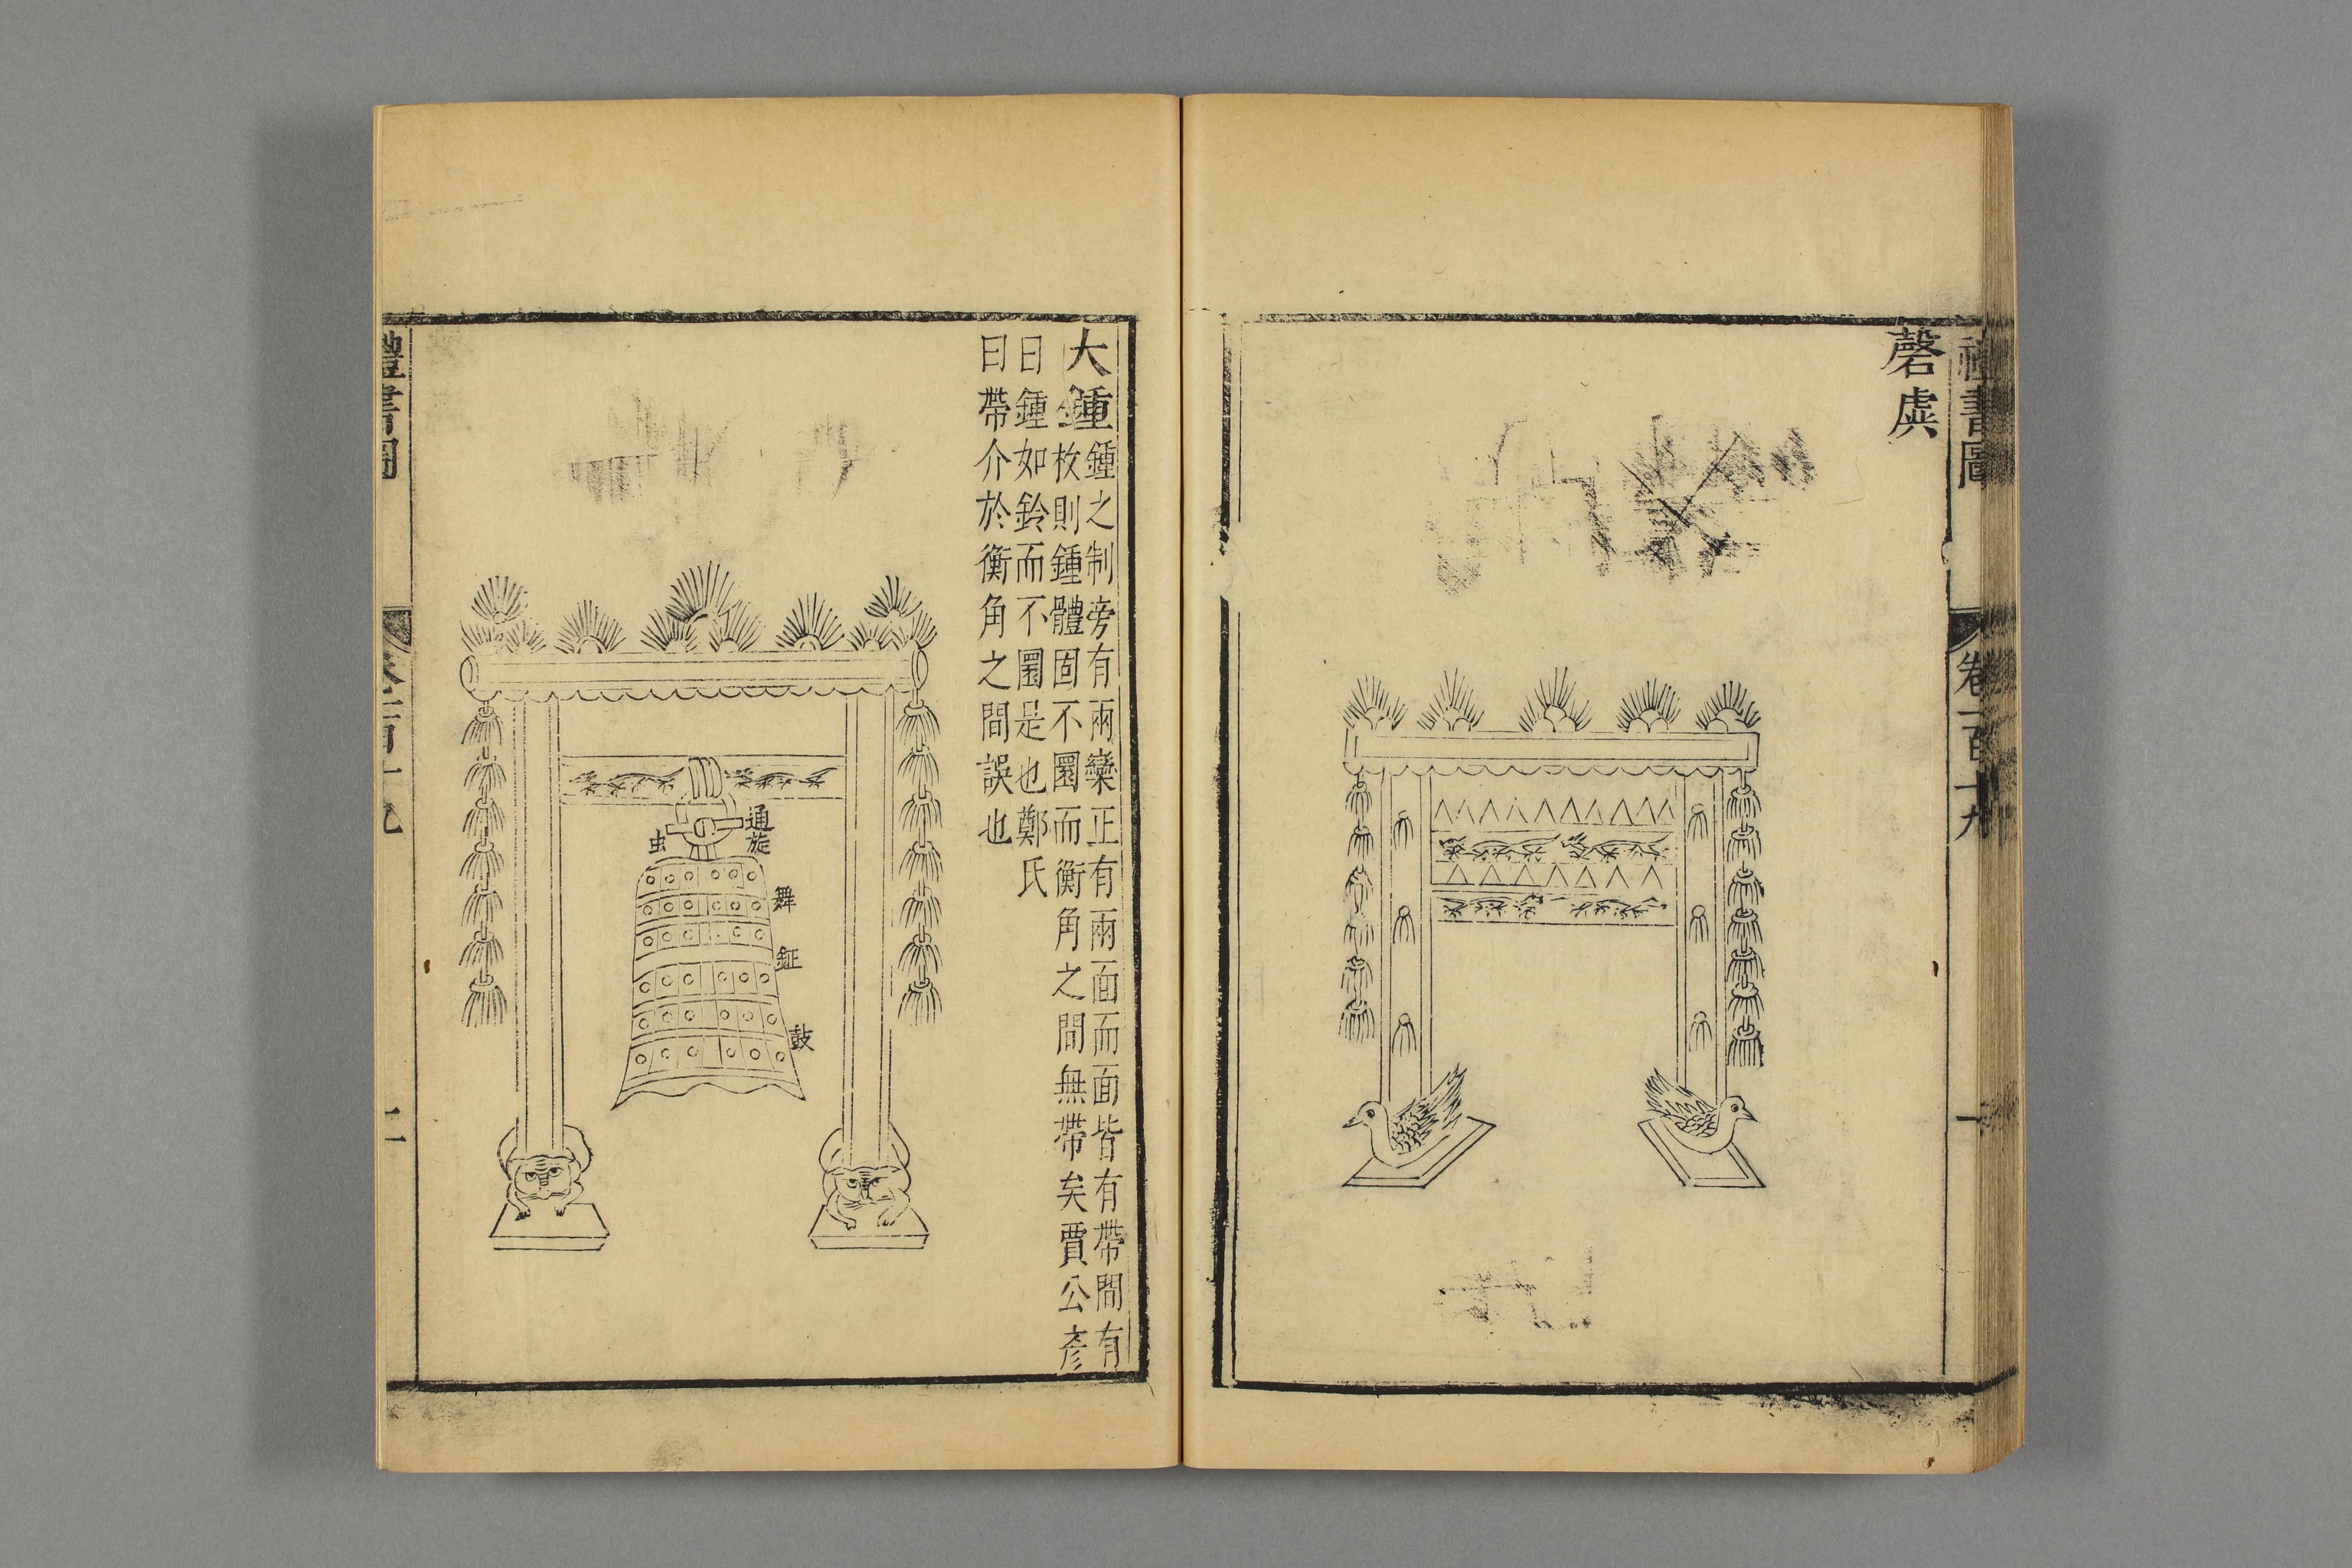 禮書圖
卷一百十九
一
磬虡
大鍾
鍾之制旁有兩欒正有兩面而面皆有帶間有
枚則鍾體固不圜而衡角之間無帶矣賈公彥
曰鍾如鈴而不圜是也鄭氏
曰帶介於衡角之間誤也
通旋
虫
舞
鉦
鼓
禮書圖
卷一百十九
二